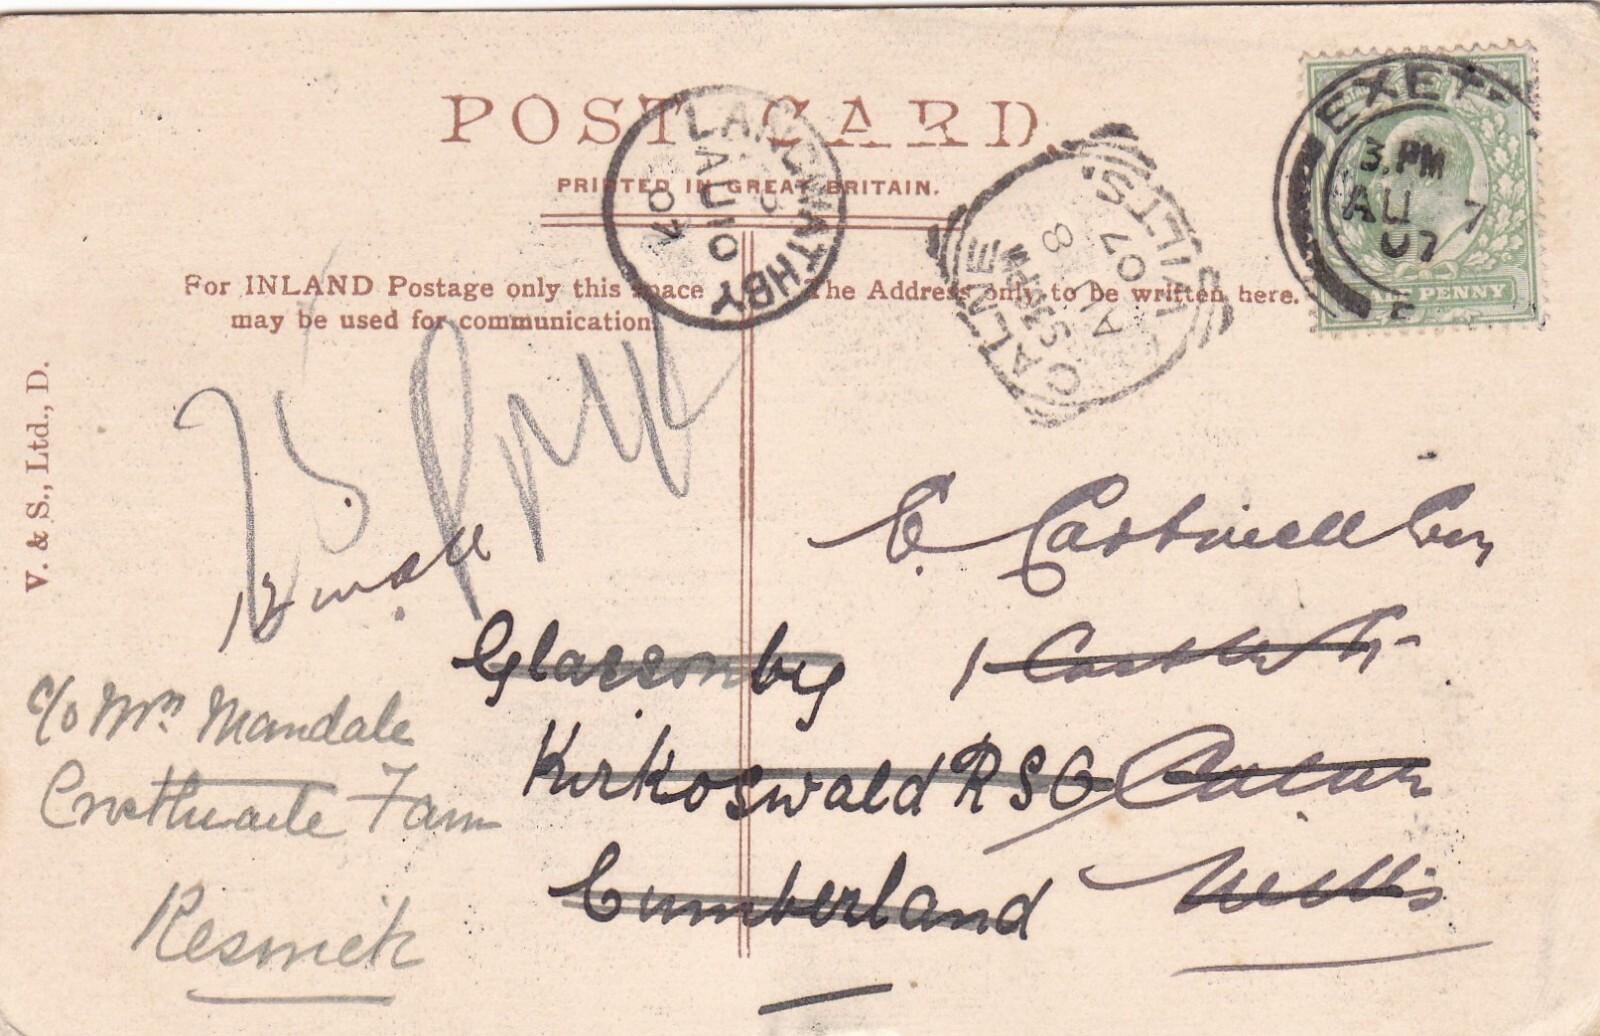 POST CARD.
PRINTED IN GREAT BRITAIN.
For INLAND Postage only this space
may be used for communication.
The Address only to be written here.
V. & S., Ltd., D.
LANGWATHBY
AU 10
07
CALNE
WILTS.
5 35 PM
AU 8
07
EXET
3. PM
AU 7
07
PENNY
E.
1 Castle St
Calne
Wilts
Glassonby
Kirkoswald RSO
Cumberland
c/o Mrs Mandale
Crosthwaite Farm
Keswick